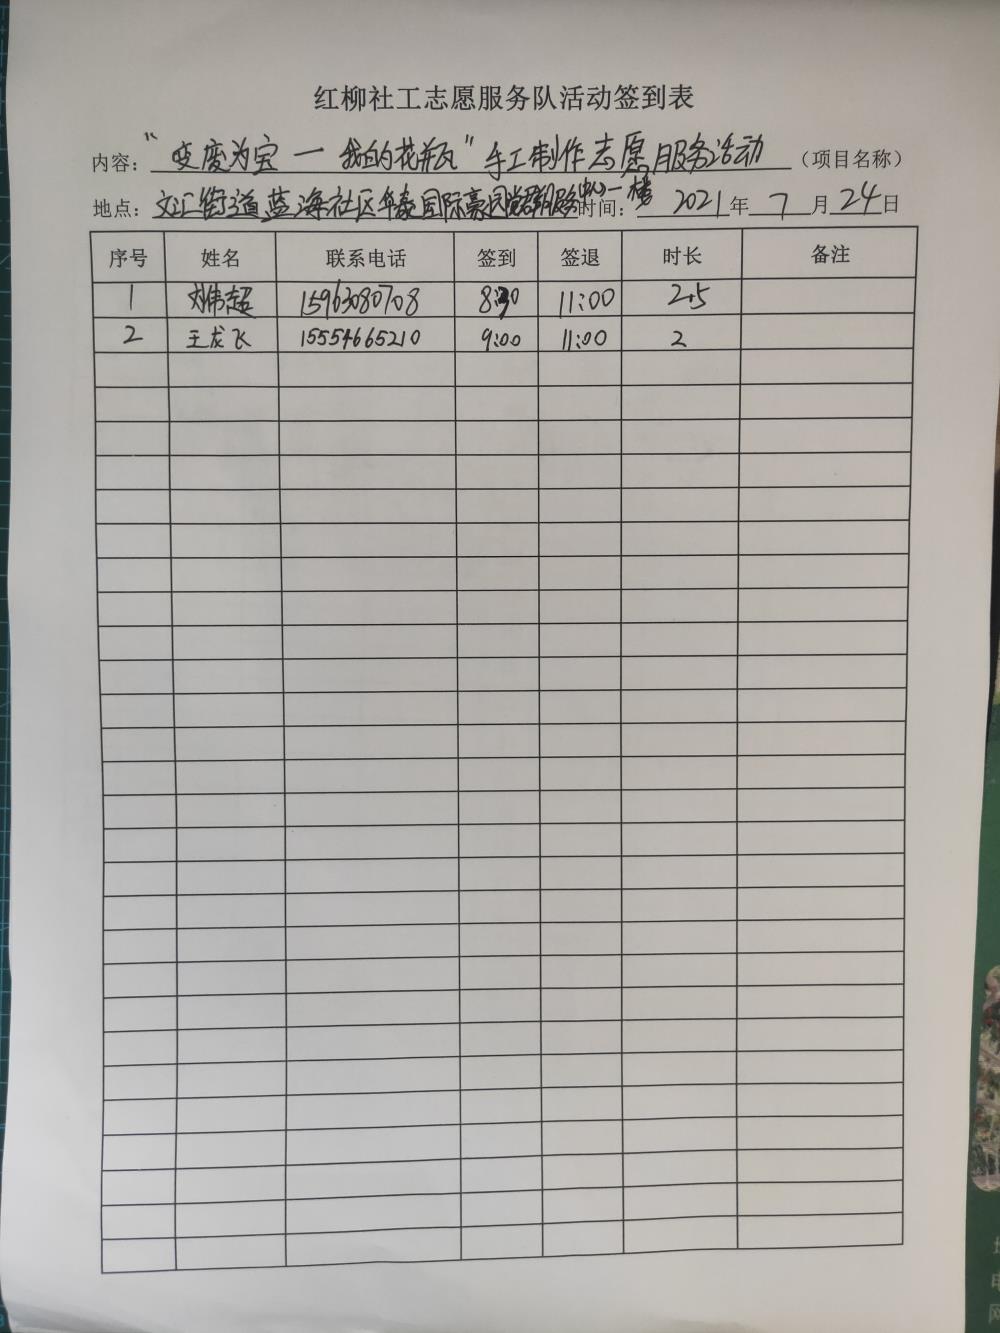 红柳社工志愿服务队活动签到表
内容：“变废为宝一我的花瓶”手工制作志愿服务活动（项目名称）
地点：文汇街道蓝海社区华泰国际豪园党群服务中心一楼 时间：2021年7月24日
序号 姓名 联系电话 签到 签退 时长 备注
1 刘伟超 15963080708 8:30 11:00 2.5
2 王龙飞 15554665210 9:00 11:00 2